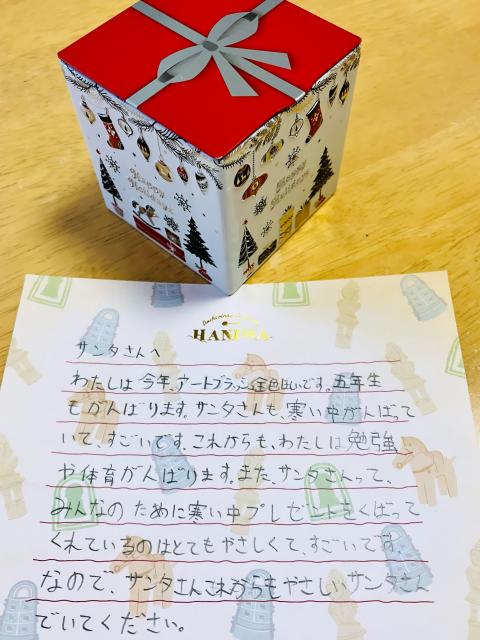 Happy
Holidays
Happy
Holidays
HANIWA
サンタさんへ
わたしは今年、アートブラッシュ全色ほしいです。五年生
もがんばります。サンタさんも、寒い中がんばって
いて、すごいです。これからも、わたしは勉強
や体育がんばります。また、サンタさんって、
みんなのために寒い中プレゼントをくばって
くれているのはとてもやさしくて、すごいです。
なので、サンタさんこれからもやさしいサンタさん
でいてください。